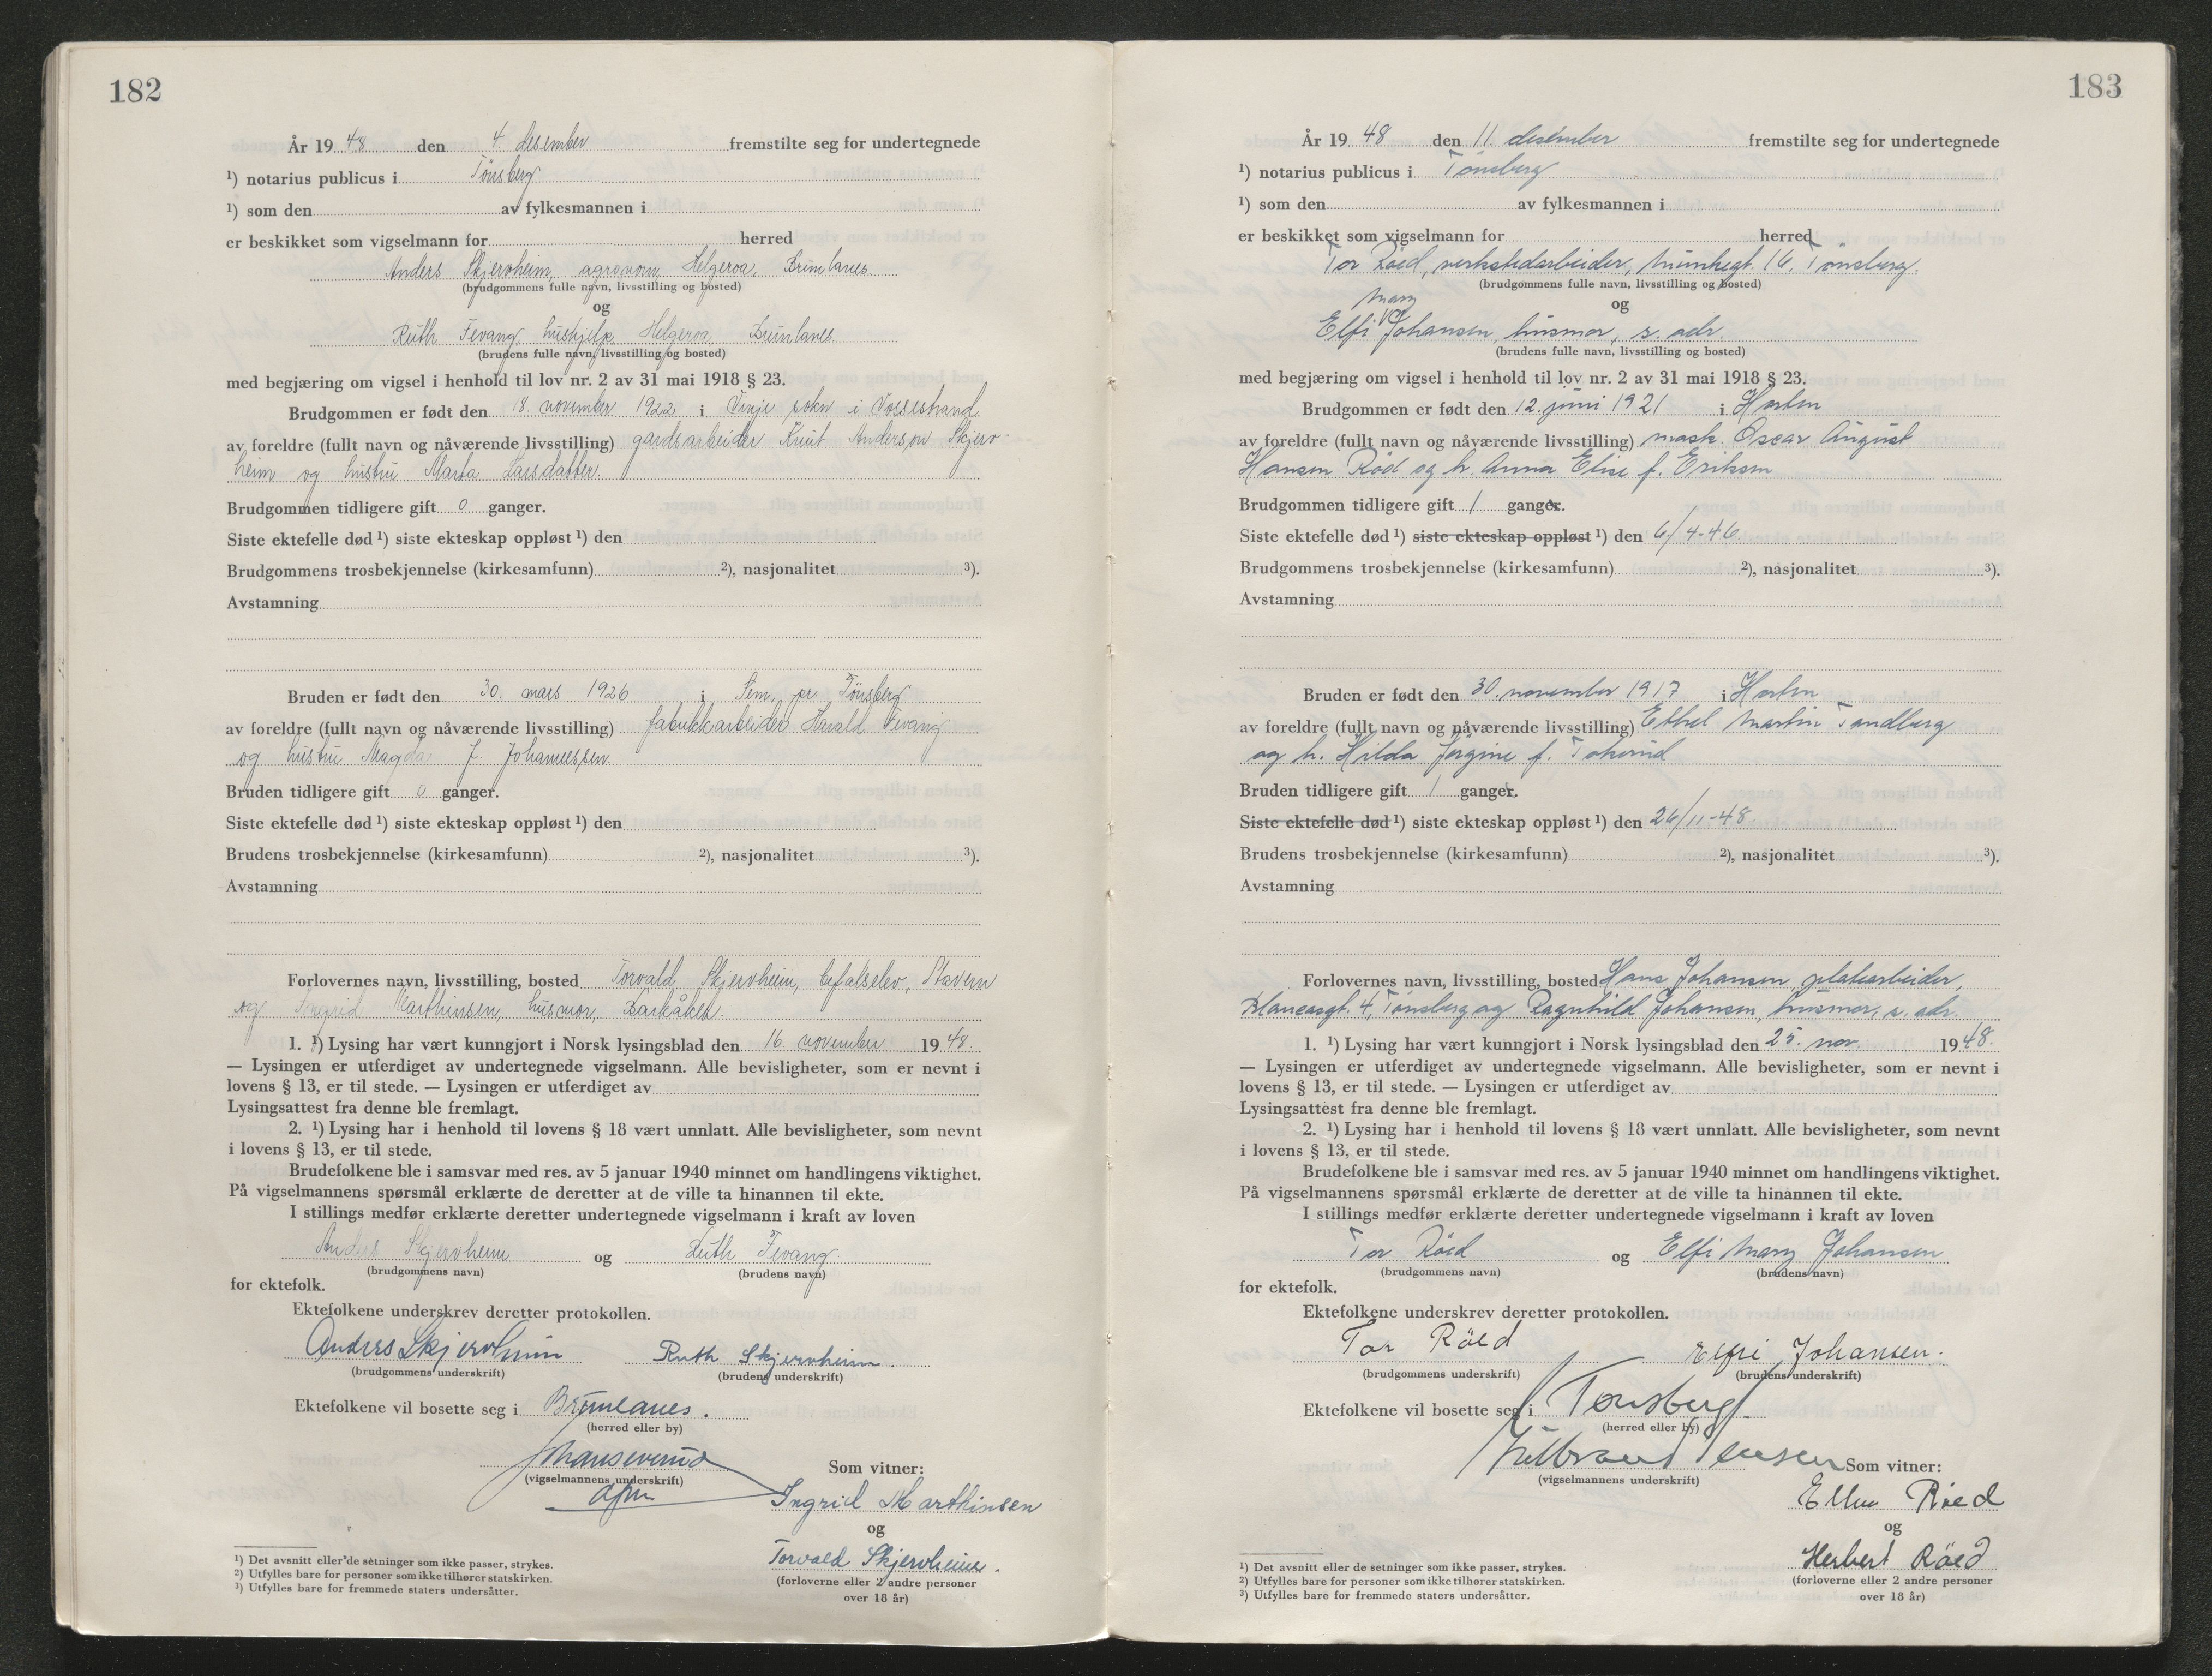 182
År 19 48 den 4. desember fremstilte seg for undertegnede
¹) notarius publicus i Tönsberg
¹) som den av fylkesmannen i
er beskikket som vigselmann for herred
Anders Skjervheim, agronom, Helgeroa, Brunlanes
(brudgommens fulle navn, livsstilling og bosted)
og
Ruth Fevang, hushjelp, Helgeroa, Brunlanes.
(brudens fulle navn, livsstilling og bosted)
med begjæring om vigsel i henhold til lov nr. 2 av 31 mai 1918 § 23.
Brudgommen er født den 18. november 1922 i Vinje sokn i Vossestrand
av foreldre (fullt navn og nåværende livsstilling) gardsarbeider Knut Anderson Skjerv-
heim og hustru Marta Larsdatter.
Brudgommen tidligere gift 0 ganger.
Siste ektefelle død ¹) siste ekteskap oppløst ¹) den
Brudgommens trosbekjennelse (kirkesamfunn) ²), nasjonalitet ³).
Avstamning
Bruden er født den 30. mars 1926 i Sem, pr. Tönsberg
av foreldre (fullt navn og nåværende livsstilling) fabrikkarbeider Harald Fevang
og hustru Magda f. Johannessen.
Bruden tidligere gift 0 ganger.
Siste ektefelle død ¹) siste ekteskap oppløst ¹) den
Brudens trosbekjennelse (kirkesamfunn) ²), nasjonalitet ³).
Avstamning
Forlovernes navn, livsstilling, bosted Torvald Skjervheim, befalselev, Stavern
og Ingrid Marthinsen, husmor, Barkåker.
1. ¹) Lysing har vært kunngjort i Norsk lysingsblad den 16. november 19 48.
— Lysingen er utferdiget av undertegnede vigselmann. Alle bevisligheter, som er nevnt i
lovens § 13, er til stede. — Lysingen er utferdiget av
Lysingsattest fra denne ble fremlagt.
2. ¹) Lysing har i henhold til lovens § 18 vært unnlatt. Alle bevisligheter, som nevnt
i lovens § 13, er til stede.
Brudefolkene ble i samsvar med res. av 5 januar 1940 minnet om handlingens viktighet.
På vigselmannens spørsmål erklærte de deretter at de ville ta hinannen til ekte.
I stillings medfør erklærte deretter undertegnede vigselmann i kraft av loven
Anders Skjervheim og Ruth Fevang
(brudgommens navn) (brudens navn)
for ektefolk.
Ektefolkene underskrev deretter protokollen.
Anders Skjervheim Ruth Skjervheim.
(brudgommens underskrift) (brudens underskrift)
Ektefolkene vil bosette seg i Brunlanes.
(herred eller by)
(vigselmannens underskrift)
Som vitner:
Ingrid Marthinsen
og
Torvald Skjervheim.
(forloverne eller 2 andre personer
over 18 år)
¹) Det avsnitt eller de setninger som ikke passer, strykes.
²) Utfylles bare for personer som ikke tilhører statskirken.
³) Utfylles bare for fremmede staters undersåtter.
183
År 19 48 den 11. desember fremstilte seg for undertegnede
¹) notarius publicus i Tönsberg
¹) som den av fylkesmannen i
er beskikket som vigselmann for herred
Tor Röed, verkstedarbeider, Munkegt. 16, Tönsberg.
(brudgommens fulle navn, livsstilling og bosted)
og
Mary
Elfi Johansen, husmor, s. adr.
(brudens fulle navn, livsstilling og bosted)
med begjæring om vigsel i henhold til lov nr. 2 av 31 mai 1918 § 23.
Brudgommen er født den 12. juni 1921 i Horten
av foreldre (fullt navn og nåværende livsstilling) mask. Oscar August
Hansen Röd og h. Anna Elise f. Eriksen
Brudgommen tidligere gift 1 ganger.
Siste ektefelle død ¹) siste ekteskap oppløst ¹) den 6/4-46
Brudgommens trosbekjennelse (kirkesamfunn) ²), nasjonalitet ³).
Avstamning
Bruden er født den 30. november 1917 i Horten
av foreldre (fullt navn og nåværende livsstilling) Ethel Martin Tandberg
og h. Hilda Jörgine f. Tokerud
Bruden tidligere gift 1 ganger.
Siste ektefelle død ¹) siste ekteskap oppløst ¹) den 26/11-48
Brudens trosbekjennelse (kirkesamfunn) ²), nasjonalitet ³).
Avstamning
Forlovernes navn, livsstilling, bosted Hans Johansen, platearbeider,
4, Tönsberg og Ragnhild Johansen, husmor, s. adr.
1. ¹) Lysing har vært kunngjort i Norsk lysingsblad den 25. nov. 19 48.
— Lysingen er utferdiget av undertegnede vigselmann. Alle bevisligheter, som er nevnt i
lovens § 13, er til stede. — Lysingen er utferdiget av
Lysingsattest fra denne ble fremlagt.
2. ¹) Lysing har i henhold til lovens § 18 vært unnlatt. Alle bevisligheter, som nevnt
i lovens § 13, er til stede.
Brudefolkene ble i samsvar med res. av 5 januar 1940 minnet om handlingens viktighet.
På vigselmannens spørsmål erklærte de deretter at de ville ta hinannen til ekte.
I stillings medfør erklærte deretter undertegnede vigselmann i kraft av loven
Tor Röed og Elfi Mary Johansen
(brudgommens navn) (brudens navn)
for ektefolk.
Ektefolkene underskrev deretter protokollen.
Tor Röed Elfi Johansen.
(brudgommens underskrift) (brudens underskrift)
Ektefolkene vil bosette seg i Tønsberg.
(herred eller by)
(vigselmannens underskrift)
Som vitner:
Röed
og
Herbert Röed
(forloverne eller 2 andre personer
over 18 år)
¹) Det avsnitt eller de setninger som ikke passer, strykes.
²) Utfylles bare for personer som ikke tilhører statskirken.
³) Utfylles bare for fremmede staters undersåtter.